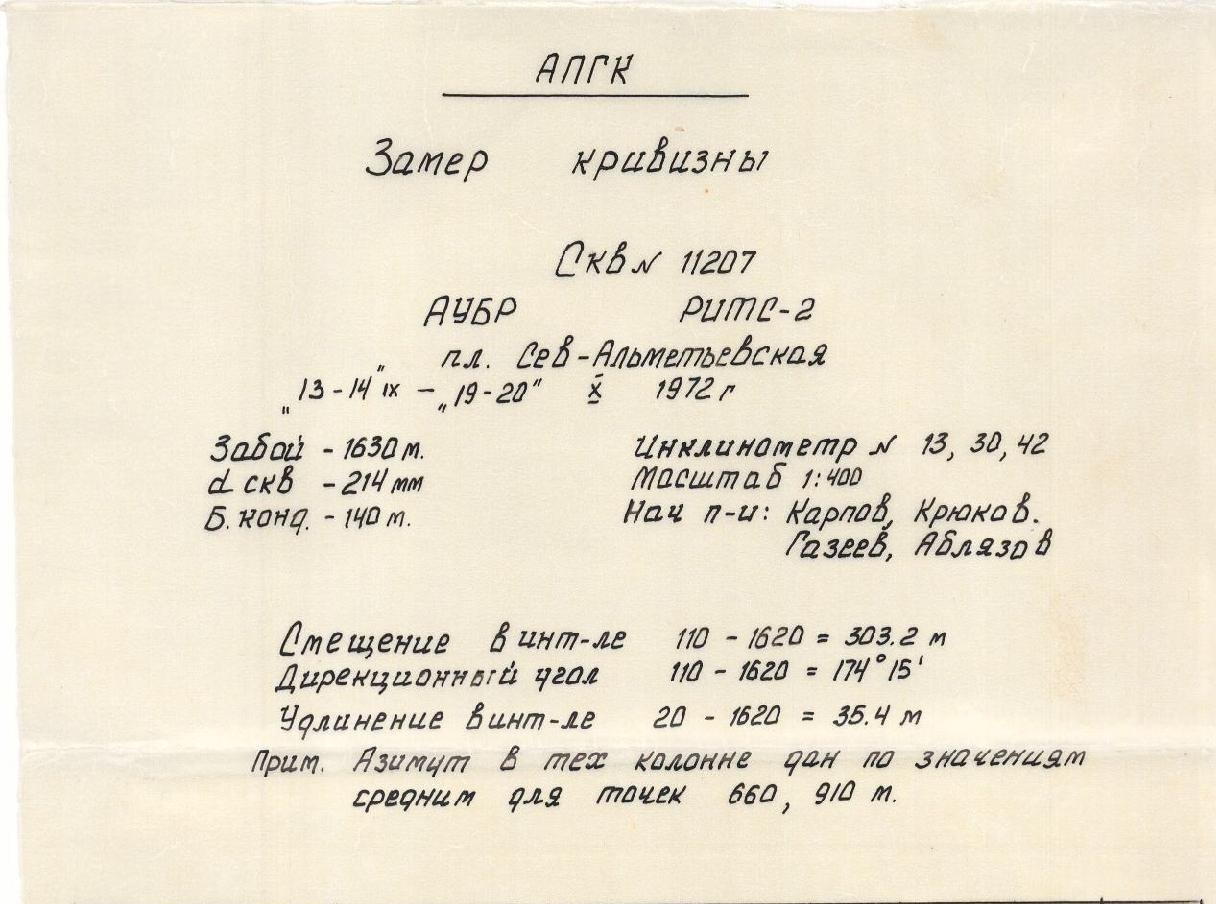 АПГК
Замер кривизны
Скв № 11207
АУБР РИТС-2
пл. Сев-Альметьевская
„13-14" IX – „19-20" X 1972 г
Забой - 1630 м.
d скв - 214 мм
Б. конд. - 140 м.
Инклинометр № 13, 30, 42
Масштаб 1:400
Нач п-и: Карпов, Крюков.
Газеев, Аблязов
Смещение в инт-ле 110 - 1620 = 303.2 м
Дирекционный угол 110 - 1620 = 174° 15'
Удлинение в инт-ле 20 - 1620 = 35.4 м
Прим. Азимут в тех колонне дан по значениям
средним для точек 660, 910 м.